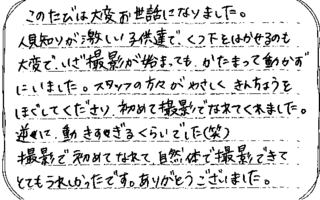 このたびは大変お世話になりました。
人見知りが激しい子供達で、くつ下をはかせるのも
大変で、いざ撮影が始まっても、かたまって動かず
にいました。スタッフの方々がやさしく きんちょうを
ほぐしてくださり、初めて撮影でなれてくれました。
逆に、動きすぎるくらいでした(笑)
撮影で初めてなれて、自然体で撮影できて
とてもうれしかったです。ありがとうございました。